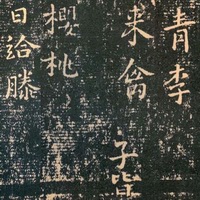 青李
来禽
子皆
櫻桃
日給滕